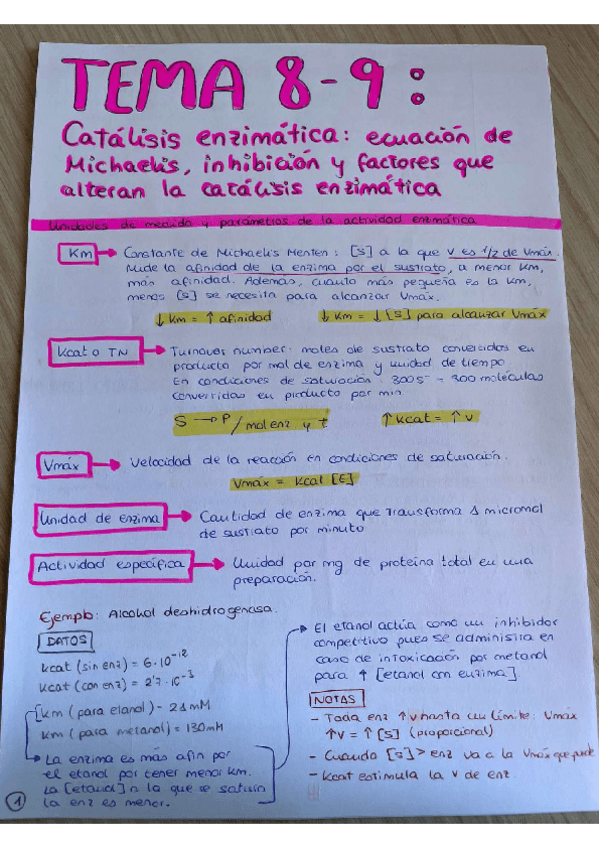 TEMA 8-9:
Catálisis enzimática: ecuación de
Michaelis, inhibición y factores que
alteran la catálisis enzimática
Unidades de medida y parámetros de la actividad enzimática
Km → Constante de Michaelis Menten: [S] a la que V es 1/2 de Vmáx.
Mide la afinidad de la enzima por el sustrato, a menor Km,
más afinidad. Además, cuanto más pequeña es la Km,
menos [S] se necesita para alcanzar Vmáx.
↓ Km = ↑ afinidad
↓ Km = ↓ [S] para alcanzar Vmáx
Kcat o TN → Turnover number: moles de sustrato convertidos en
producto por mol de enzima y unidad de tiempo.
En condiciones de saturación: 300 s⁻ = 300 moléculas
convertidas en producto por min
S → P / mol enz y t
↑ Kcat = ↑ V
Vmáx → Velocidad de la reacción en condiciones de saturación.
Vmáx = Kcat [E]
Unidad de enzima → Cantidad de enzima que transforma 1 micromol
de sustrato por minuto
Actividad específica → Unidad por mg de proteína total en una
preparación.
Ejemplo: Alcohol deshidrogenasa.
DATOS
Kcat (sin enz) = 6·10⁻¹²
Kcat (con enz) = 2'7·10⁻³
Km (para etanol) = 21 mM
Km (para metanol) = 130mM
→ La enzima es más afín por
el etanol por tener menor Km.
La [etanol] a la que se satura
la enz es menor.
→ El etanol actúa como un inhibidor
competitivo pues se administra en
caso de intoxicación por metanol
para ↑ [etanol con enzima]
NOTAS
- Toda enz ↑ V hasta un límite: Vmáx
↑V = ↑ [S] (proporcional)
- Cuando [S] > enz va a la Vmáx que puede
- Kcat estimula la V de enz.
1